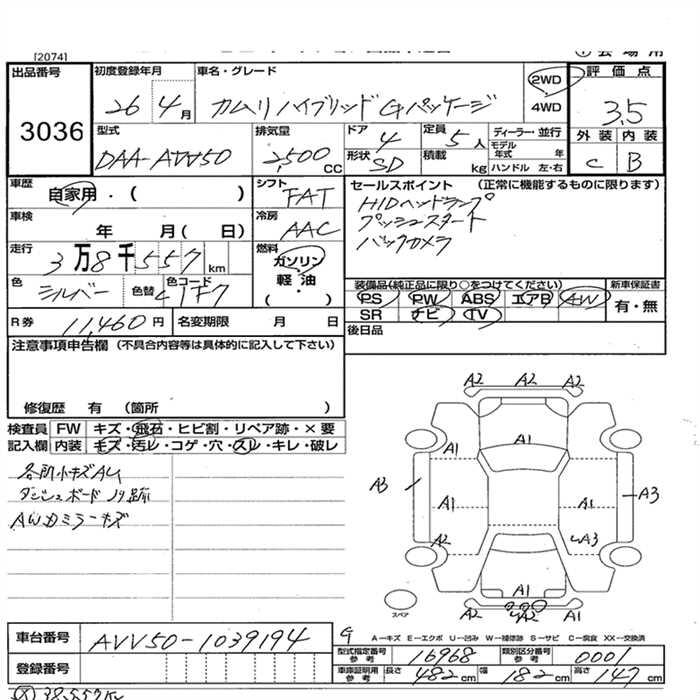 [2074]
出品番号 3036
初度登録年月 26年 4月
車名・グレード カムリハイブリッドGパッケージ
2WD
4WD
評価点 3.5
外装 内装
C B
型式 DAA-AVV50
排気量 2,500 CC
ドア 4
形状 SD
定員 5人
積載 kg
ディーラー・並行
モデル年式 年
ハンドル 左・右
車歴 自家用・( )
シフト FAT
車検 年 月( 日)
冷房 AAC
走行 3万8千557km
燃料 ガソリン
軽油
( ・ )
色 シルバー 色替 色コード 1F7
R券 11,460円 名変期限 月 日
セールスポイント (正常に機能するものに限ります)
HIDヘッドランプ
プッシュスタート
バックカメラ
装備品(純正品に限り○をつけてください)
PS PW ABS エアB AW
SR ナビ TV
新車保証書
有・無
後日品
注意事項申告欄 (不具合内容等は具体的に記入して下さい)
修復歴 有 (箇所 )
検査員 FW キズ・飛石・ヒビ割・リペア跡・×要
記入欄 内装 キズ・汚レ・コゲ・穴・スレ・キレ・破レ
各所小キズAU
ダッシュボードノリ跡
AWカミラーキズ
A2 A2 A2
A1 A1
A3 A1 A1 A3
A2 A3
A1
A2 A1
スペア
A－キズ E－エクボ U－凹み W－補修跡 S－サビ C－腐食 XX－交換済
車台番号 AVV50-1039194
登録番号
型式指定番号 参考 16968 類別区分番号 参考 0001
車庫証明用 参考 長さ 482cm 幅 182cm 高さ 147cm